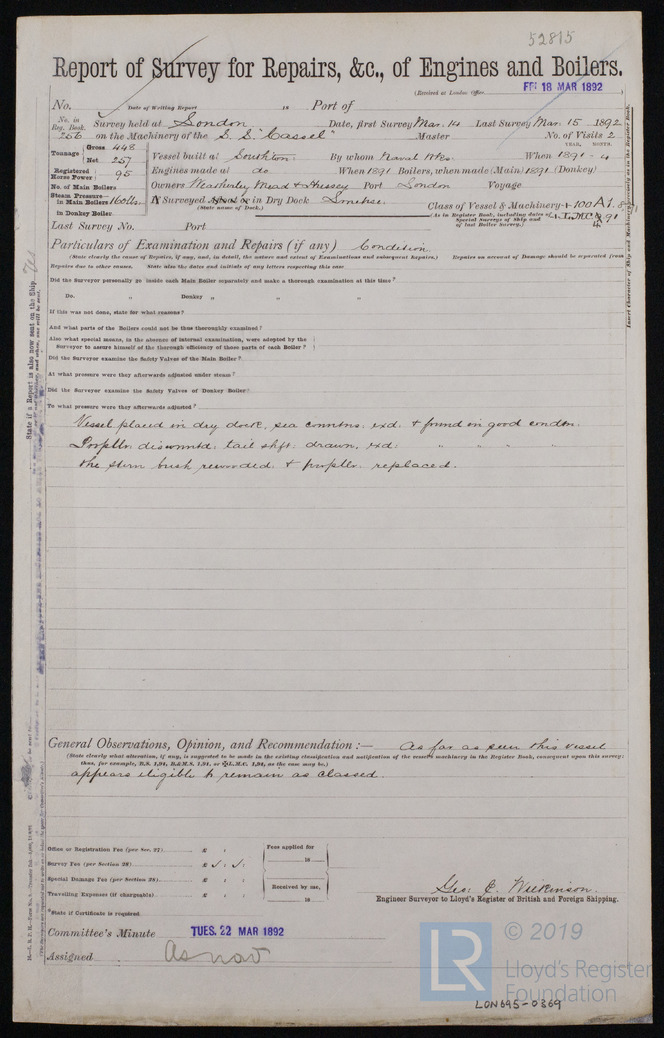 52815
Report of Survey for Repairs, &c., of Engines and Boilers.
(Received at London Office FRI 18 MAR 1892)
No. Date of Writing Report 18 Port of
No. in Reg. Book. Survey held at London Date, first Survey Mar. 14 Last Survey Mar. 15 1892
256 on the Machinery of the S.S. "Cassel" Master No. of Visits 2
Tonnage Gross 448
Net 257
Vessel built at Southton By whom Naval Wks. When 1891 - 4
YEAR. MONTH.
Registered Horse Power 95
Engines made at do When 1891 Boilers, when made (Main) 1891 (Donkey)
No. of Main Boilers
Owners Weatherley Mead & Hussey Port London Voyage
Steam Pressure— in Main Boilers 160 lbs.
If Surveyed Afloat or in Dry Dock Limehse. Class of Vessel & Machinery 100 A1.
(State name of Dock.)
(As in Register Book, including dates of Special Surveys of Ship and of last Boiler Survey.)
in Donkey Boiler
Last Survey No. Port
Particulars of Examination and Repairs (if any) Condition
(State clearly the cause of Repairs, if any, and, in detail, the nature and extent of Examinations and subsequent Repairs.) Repairs on account of Damage should be separated from
Repairs due to other causes. State also the dates and initials of any letters respecting this case
Did the Surveyor personally go inside each Main Boiler separately and make a thorough examination at this time?
Do. „ Donkey „ „ „
If this was not done, state for what reasons?
And what parts of the Boilers could not be thus thoroughly examined?
Also what special means, in the absence of internal examination, were adopted by the Surveyor to assure himself of the thorough efficiency of those parts of each Boiler?
Did the Surveyor examine the Safety Valves of the Main Boiler?
At what pressure were they afterwards adjusted under steam?
Did the Surveyor examine the Safety Valves of Donkey Boiler?
To what pressure were they afterwards adjusted?
Vessel placed in dry dock, sea conntns: exd: & found in good condtn:
Propllr: disconntd: tail shft: drawn, exd: „ „ „ „
the stern bush rewooded & propllr: replaced.
General Observations, Opinion, and Recommendation:— As far as seen this vessel
(State clearly what alteration, if any, is suggested to be made in the existing classification and notification of the vessel's machinery in the Register Book, consequent upon this survey;
thus, for example, B.S. 1,91, B.&M.S. 1,91, or ✠L.M.C. 1,91, as the case may be.)
appears eligible to remain as classed.
Office or Registration Fee (per Sec. 27) £ : :
Fees applied for
18
Survey Fee (per Section 28) £ : :
Special Damage Fee (per Section 28) £ : :
Received by me,
18
Travelling Expenses (if chargeable) £ : :
Geo: C. Wilkinson.
Engineer Surveyor to Lloyd's Register of British and Foreign Shipping.
*State if Certificate is required
Committee's Minute TUES. 22 MAR 1892
Assigned As now
State if a Report is also now sent on the Ship. Yes
Insert Character of Ship and Machinery precisely as in the Register Book.
LR
© 2019
Lloyd's Register
Foundation
LON695-0369